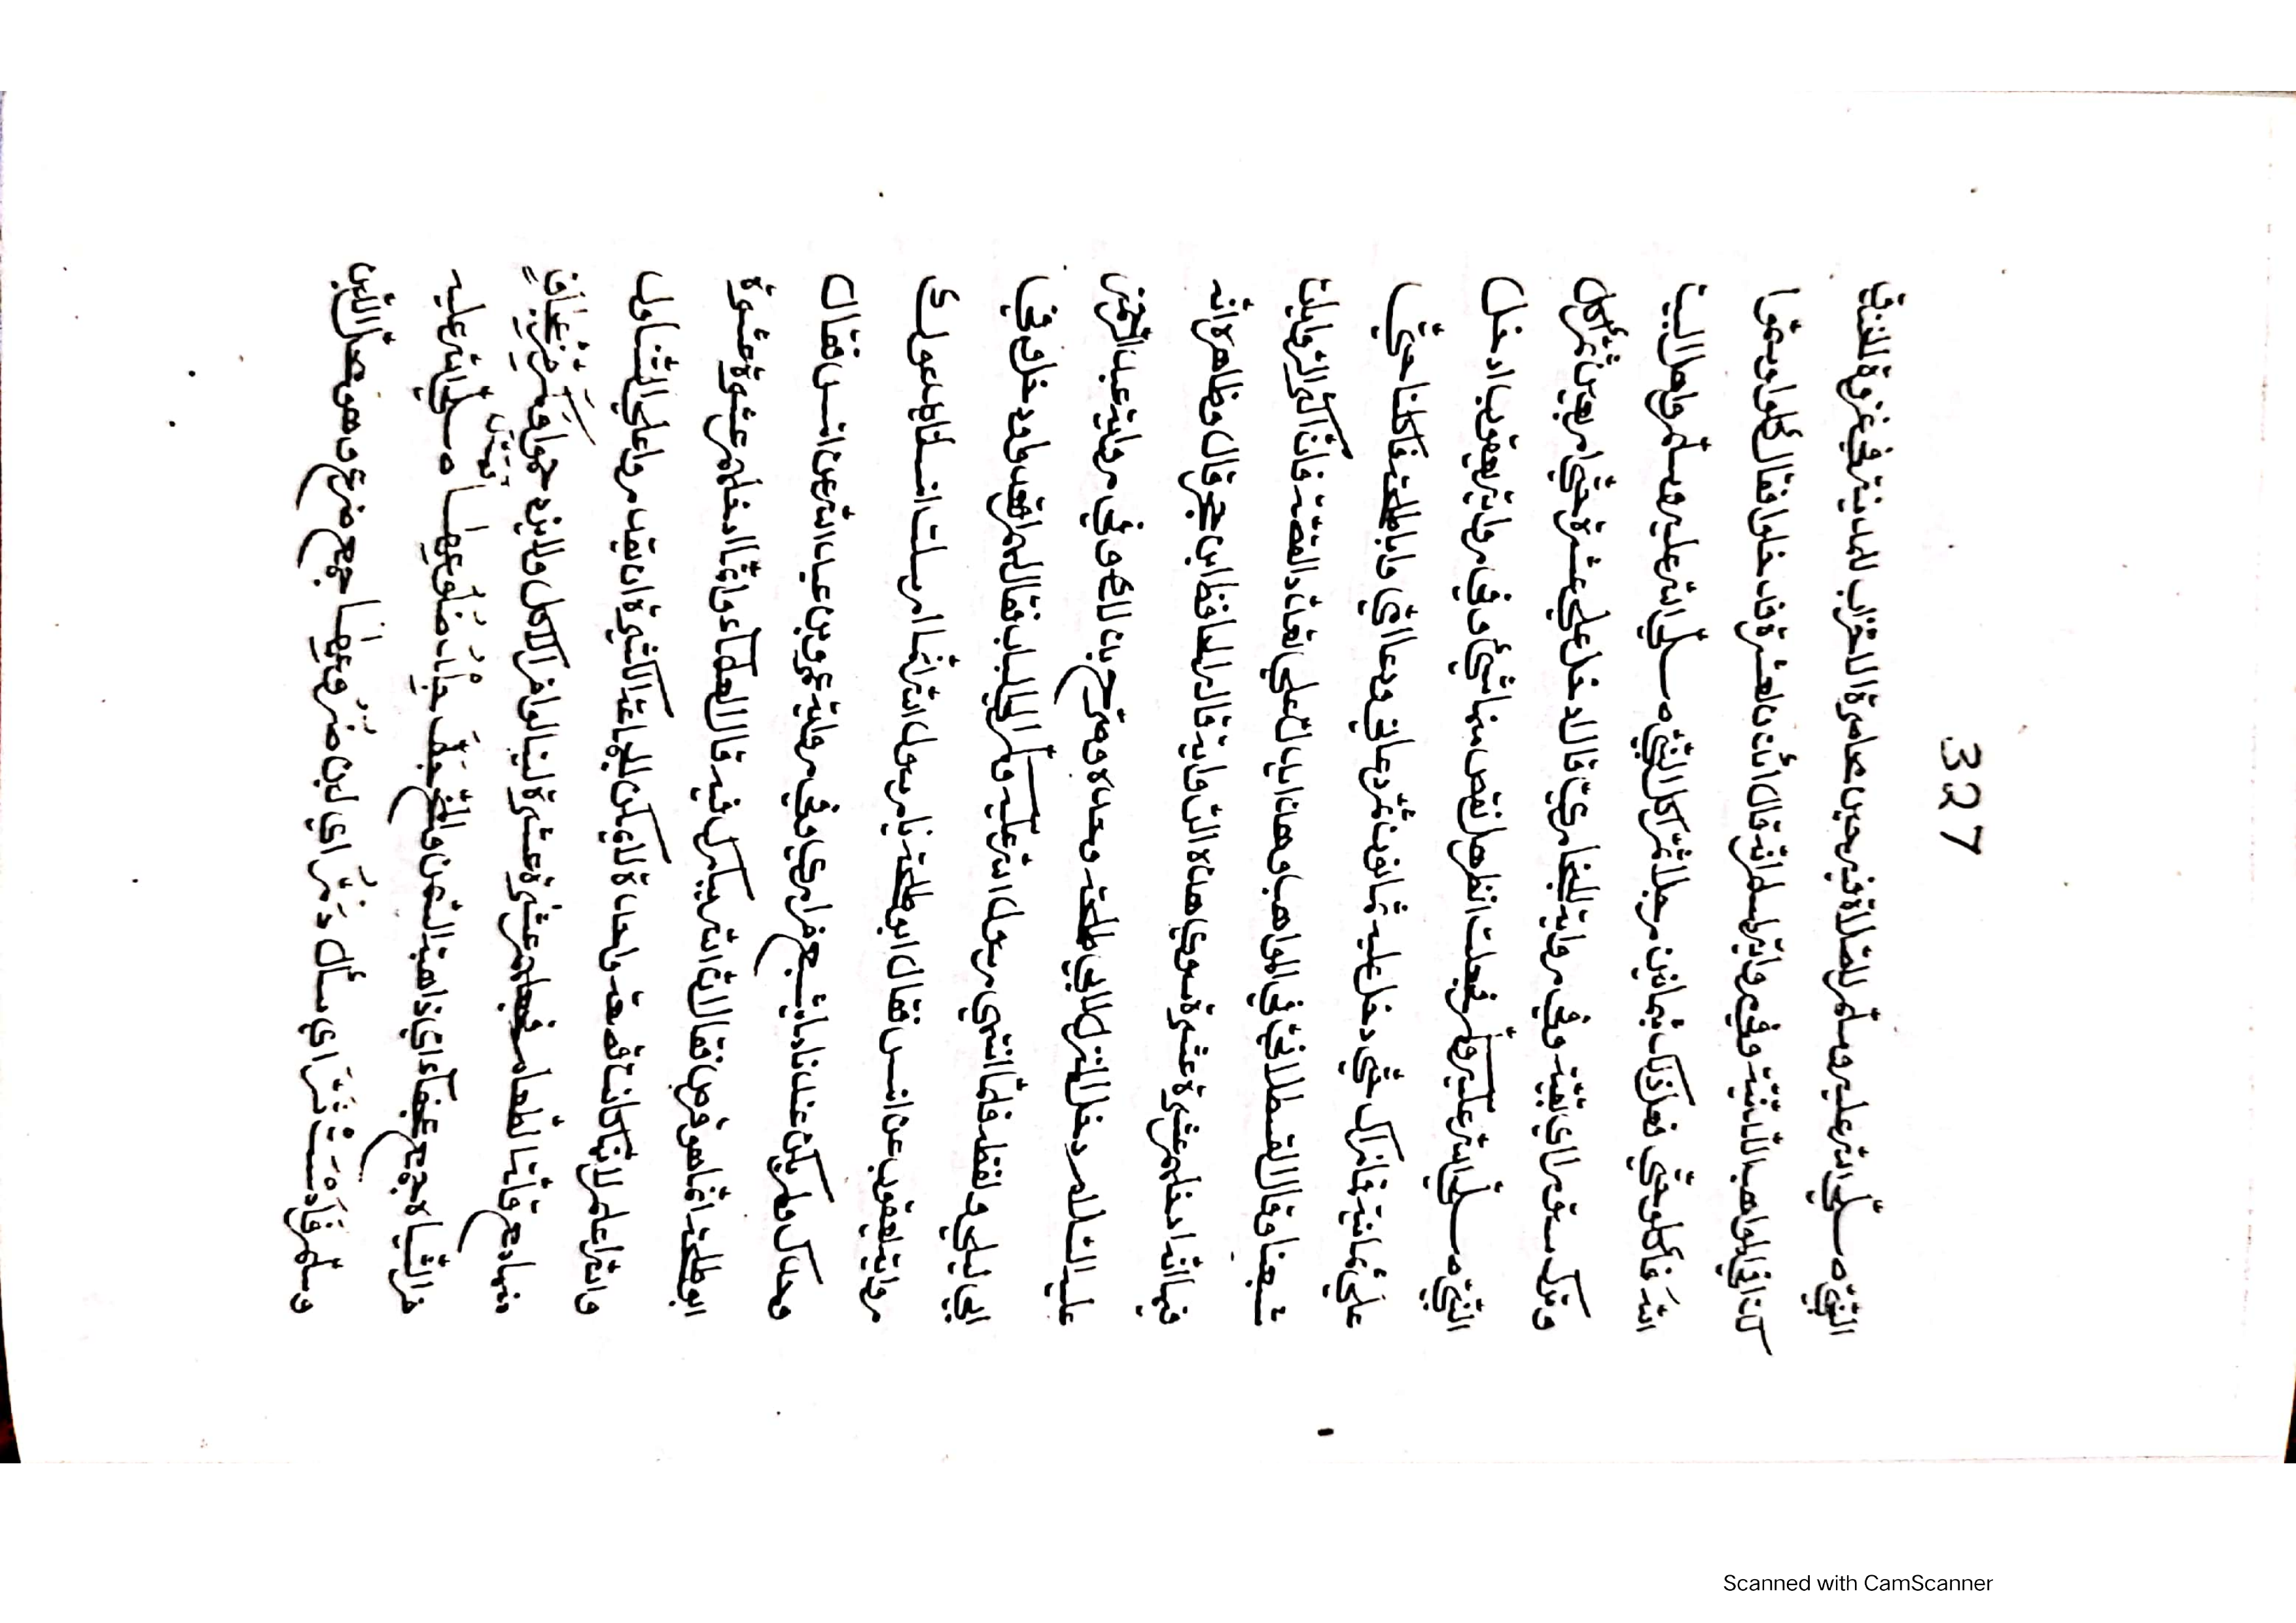 327
النبي صلى الله عليه وسلم للصلاة فيه حين محاصرة الاحزاب للمدينة في غزوة الخندق
كذا في المواهب اللدنية وفي رواية لمسلم انه قال ائذن لعشرة فدخلوا فقال كلوا وسموا
الله فأكلوا حتى فعل ذلك بثمانين رجلا ثم اكل النبي صلى الله عليه وسلم واهل البيت
وترك سؤرا اي بقية وفي رواية البخاري قال ادخل علي عشرة حتى اربعين ثم اكل
النبي صلى الله عليه وسلم فجعلت انظر هل نقص منها شيء وفي رواية يعقوب ادخل
علي ثمانية فما زال حتى دخل عليه ثمانون ثم دعاني ودعا امي وابا طلحة فأكلنا حتى
شبعنا وقال القسطلاني في المواهب وهذا يدل على تعدد القصة فان اكثر الروايات
فيها انه ادخلهم عشرة عشرة سوى هذه الرواية قال الحافظ ابن حجر قال وظاهره انه
عليه السلام دخل لمنزل ابي طلحة وحده وصرح بذلك وفي رواية عبد الرحمن
ابن ابي ليلى ولفظه فلما انتهى رسول الله عليه وسلم الى الباب فقال لهم اقعدوا ودخل وفي
رواية يعقوب عن انس فقال ابو طلحة يا رسول الله انما ارسلت انسا يدعوك
وحدك ولم يكن عندنا ما يشبع من ارى وفي رواية عمرو بن عبد الله عن انس فقال
ابو طلحة انما هو قرص فقال ان الله سيبارك فيه قال العلماء وانما ادخلهم عشرة عشرة
والله اعلم لانها كانت قصعة واحدة لا يمكن الجماعة الكثيرة ان يقدروا على التناول
منها مع قلة الطعام فجعلهم عشرة عشرة لينالوا من الاكل ولا يزدحموا
من الشياه جمع عجفاء اي ذاهبة السمن والمخ خف جلد ضلوعها صلى الله عليه
وسلم اي سأل در اي لبن ضروعها جمع ضرع وهو من الذين